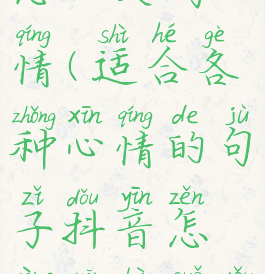 qíng shì hé gè
情（适合各
zhǒng xīn qíng de jù
种心情的句
zǐ dǒu yīn zěn
子抖音怎